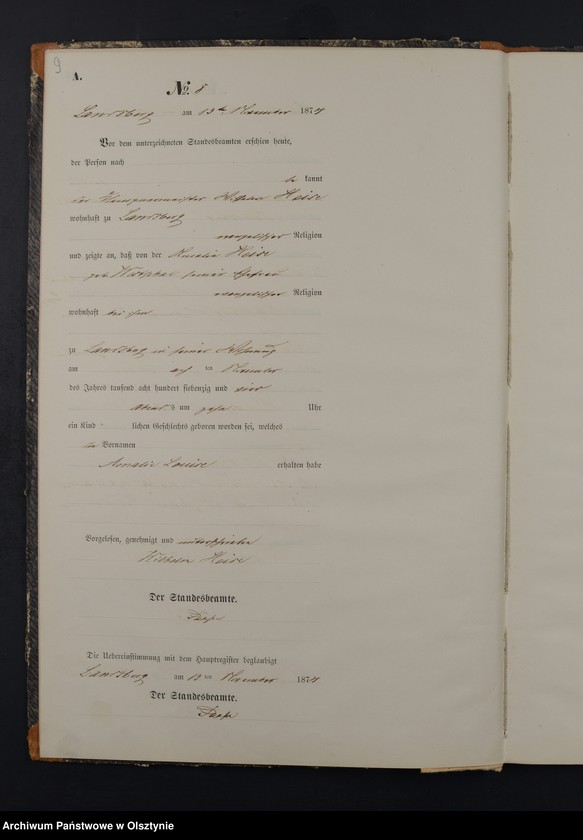 9
A.
No. 8
Landsberg am 13ten November 1874
Vor dem unterzeichneten Standesbeamten erschien heute,
der Person nach
be kannt
der Heise
wohnhaft zu Landsberg
evangelischer Religion
und zeigte an, daß von der Amalie Heise
geb. seiner Ehefrau
evangelischer Religion
wohnhaft bei ihm
zu Landsberg in seiner Wohnung
am elf ten November
des Jahres tausend acht hundert siebenzig und vier
Abend s um zehn Uhr
ein Kind lichen Geschlechts geboren worden sei, welches
die Vornamen
Amalie Louise erhalten habe
Vorgelesen, genehmigt und unterschrieben
Wilhelm Heise
Der Standesbeamte.
Die Uebereinstimmung mit dem Hauptregister beglaubigt
Landsberg am 13 ten November 1874
Der Standesbeamte.
Archiwum Państwowe w Olsztynie